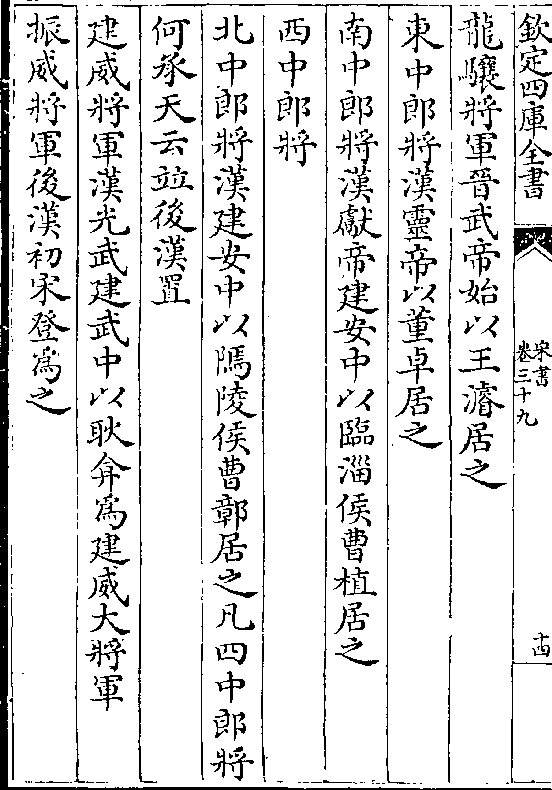 欽定四庫全書
宋書
卷三十九
十四
龍驤將軍晉武帝始以王濬居之
東中郎將漢靈帝以董卓居之
南中郎將漢獻帝建安中以臨淄侯曹植居之
西中郎將
北中郎將漢建安中以隖陵侯曹鄣居之凡四中郎將
何承天云並後漢置
建威將軍漢光武建武中以耿弇為建威大將軍
振威將軍後漢初宋登為之